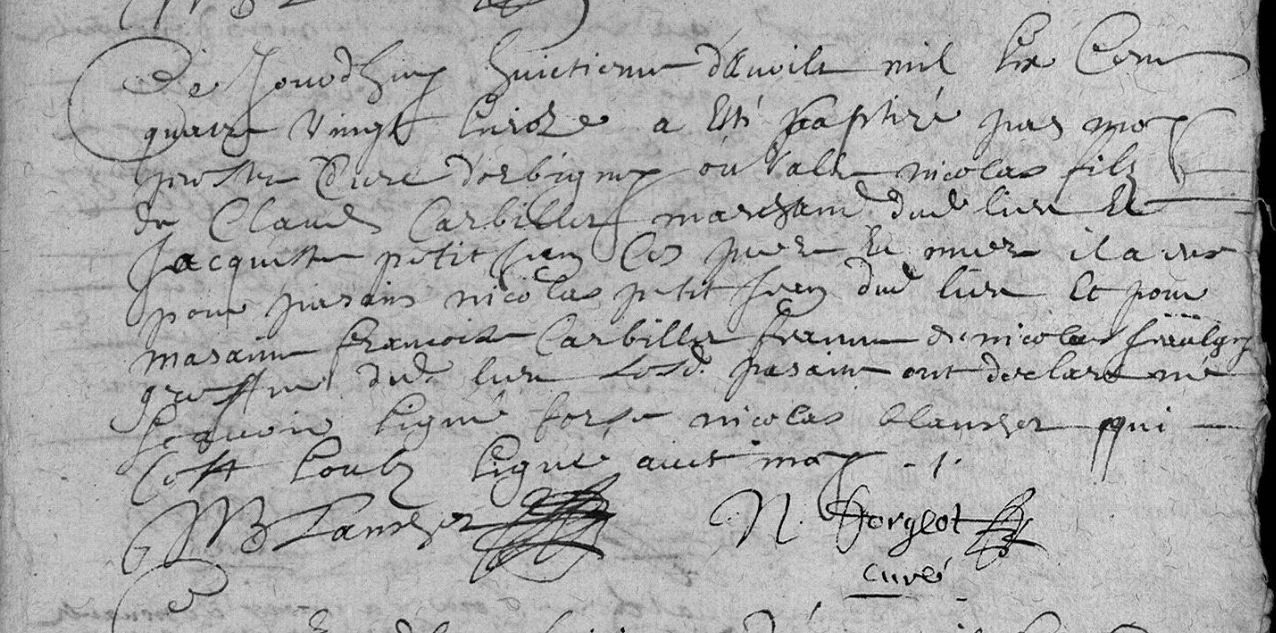 Ce Jourdhuy huictieme davvile mil six Cent
quatre vingt seize a Esté baptizé par moy
prestre Curé dorbigny ou Valle nicolas filz
de Claude Carbillet marchand dud lieu Et
Jacquette petit Jean Ces pere Et mere il a eus
pour parains nicolas petit Jean dud lieu Et pour
maraine francoise Carbillet femme de nicolas
dud lieu Lesd parains ont declaré ne
scavoir signé forse nicolas blancher qui
Cest soubz signé avec moy
N Blancher N. Forgeot
curé
Ce